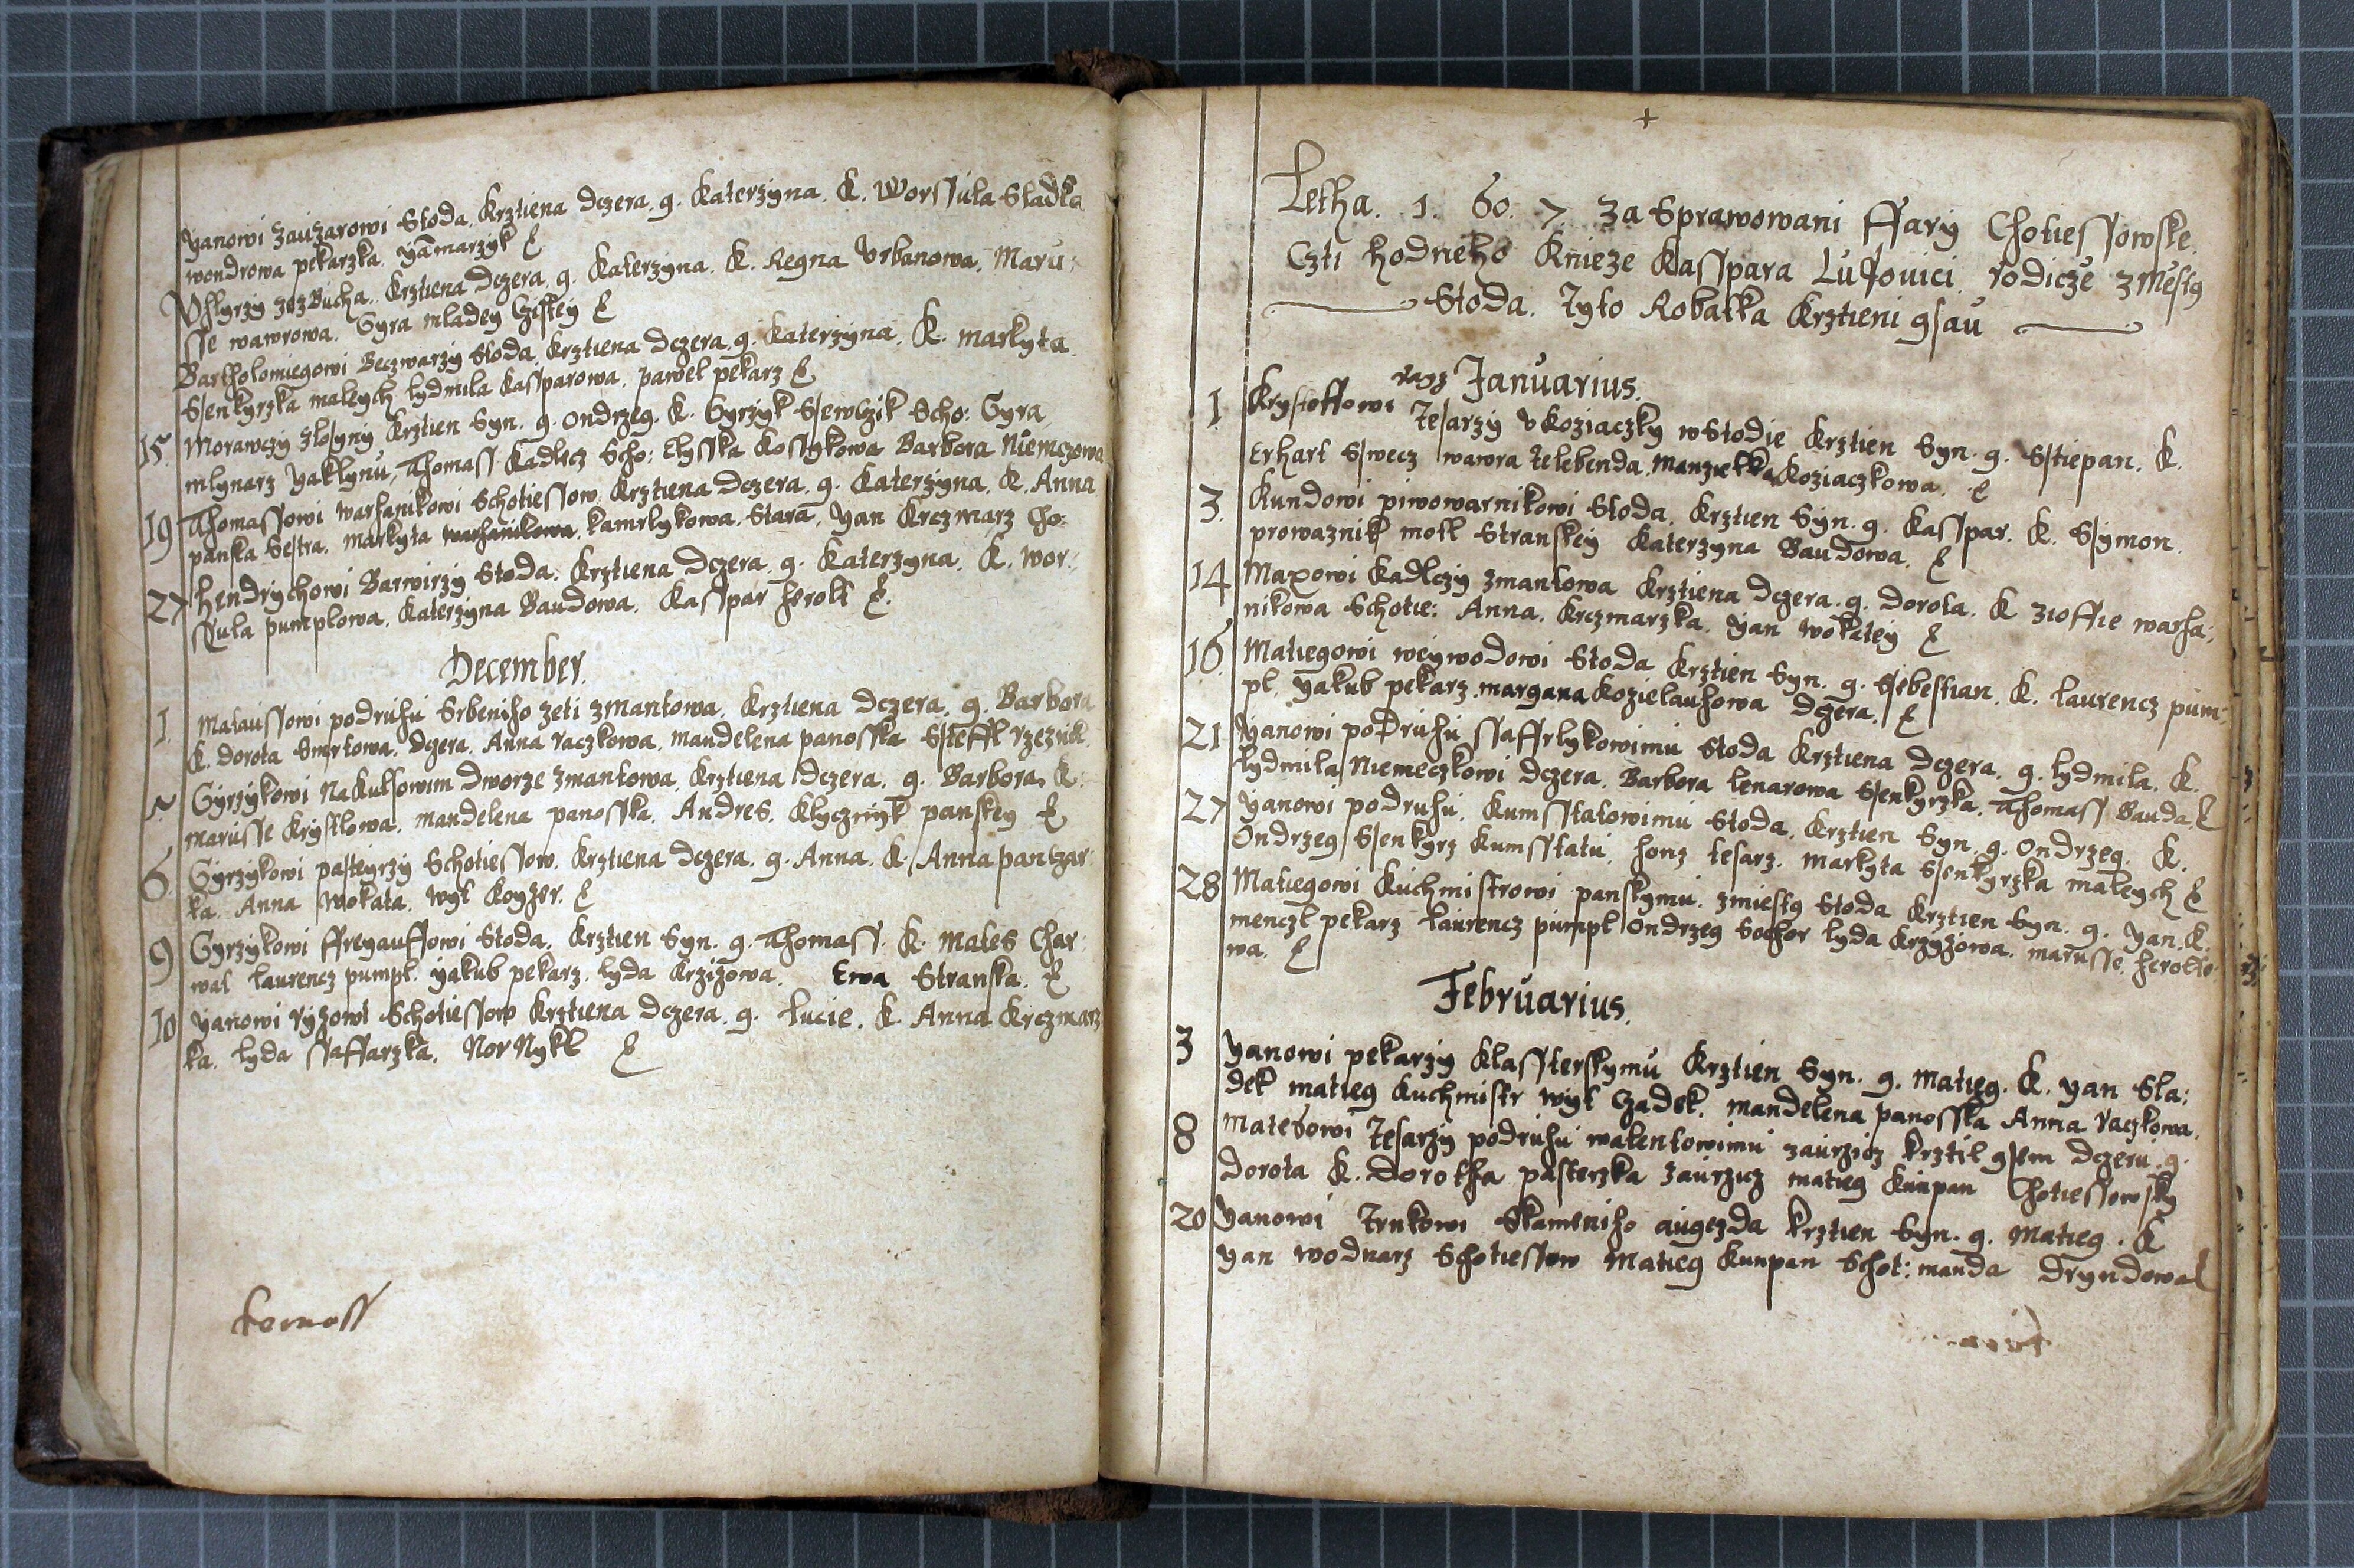 Yanowi Zauzarowi Stoda. Krztiena dczera. g. Katerzyna. K. Worssula Sladka
wondrowa pekarzka. yamarzyk
zBucha. Krztiena dczera. g. Katerzyna. K. Regna Vrbanowa. Maru:
sse wawrowa. Gyra mladey
Bartholomiegowi Beczwarzy Stoda. Krztiena dczera. g. Katerzyna. K. markyta
Ssenkyrzka maleych lydmila Kassparowa. pawel pekarz
15. Morawczy zlosyny Krztien Syn. g. Ondrzeg. K. Gyrzyk Ssewczik Scho: Gyra
mlynarz yaklynu, Thomass Kadlcz Scho: Elysska Kossykowa Barbora Niemczowa
19 Thomassowi warhanikowi Schotiessow. Krztiena dczera. g. Katerzyna. K. Anna
panska Sestra. markyta warhanikowa kamrlykowa. Stara. yan Krczmarz Cho:
27 hendrychowi Barwirzy Stoda. Krztiena dczera. g. Katerzyna. K. wor:
ssula pumplowa. Katerzyna Baudowa. Kasspar herolt
December.
1. Mataussowi podruhu Srbeniho zeti zmantowa. Krztiena dczera. g. Barbora
K. dorota Smrtowa. dczera. Anna raczkowa. mandelena panosska Steffl rzeznik
5 Gyrzykowi Nakulsowim dworze zmantowa. Krztiena dczera. g. Barbora. K.
marusse krystlowa. mandelena panosska. Andres. Klycznyk panskey
6. Gyrzykowi pasteyrzy Schotiessow. Krztiena dczera. g. Anna. K. Anna pantzar:
ka. Anna wokata. wyt Koyzer.
9 Gyrzykowi ffreyauffowi Stoda. Krztien Syn. g. Thomass. K. mates Char:
wat laurencz pumpl. yakub pekarz. lyda krzizowa. Ewa Stranska.
10 yanowi ryzowi Schotiessow Krztiena dczera. g. Lucie. K. Anna Krczmarz
ka. lyda ssaffarzka. Nor Nykl
+
Letha. 1. 60. 7 za Sprawowani ffary Chotiessowske.
Czti hodneho Knieze Kasspara Lussovici. rodicze zMesty
Stoda. Tyto Robatka Krztieni gsau
Januarius.
1 Krystoffowi Tesarzy v koziaczky wStodie Krztien Syn. g. Sstiepan. K.
Erhart Sswecz wawra telebenda. Manzielka Koziaczkowa.
3. Kundowi piwowarnikowi Stoda. Krztien Syn. g. Kasspar. K. Ssymon.
prowaznik motl Stranskey Katerzyna Baudowa.
14 Maxowi Kadlczy zmantowa Krztiena dczera. g. dorota. K zioffie warha:
nikowa Schotie: Anna. Krczmarzka. yan wokatey
16. Matiegowi weywodowi Stoda Krztien Syn. g. Ssebestian. K. laurencz pum:
pl. yakub pekarz. margana kozielauhowa dczera.
21 yanowi podruhu ssaffrlykowimu Stoda Krztiena dczera. g. lydmila. K.
lydmila Niemeczkowi dczera. Barbora lenarowa Ssenkyrzka. Thomass Bauda.
27 yanowi podruhu. Kumsstatowimu Stoda. Krztien Syn. g. Ondrzeg. K.
Ondrzeg Ssenkyrz kumsstatu. honz tesarz. markyta Ssenkyrzka maleych
28 Matiegowi Kuchmistrowi panskymu. zmiesty Stoda Krztien Syn. g. yan. K.
menczl pekarz laurencz pumpl Ondrzeg Sochor lyda krzyzowa. marusse. herolto:
wa.
Februarius.
3 yanowi pekarzy Klassterskymu Krztien Syn. g. Matieg. K. yan Sla:
dek matieg kuchmistr wyt Czadek. mandelena panosska Anna raczkowa.
8 Matesowi Tesarzy podruhu walentowimu zaurzicz krztil gsem dczeru. g.
dorota K. dorotha pasterzka zaurzicz matieg kunpan Chotiessowsky
20 yanowi Trnkowi Skameniho augezda krztien Syn. g. Matieg. K
yan wodnarz Schotiessow Matieg kunpan Schot: manda dryndowa